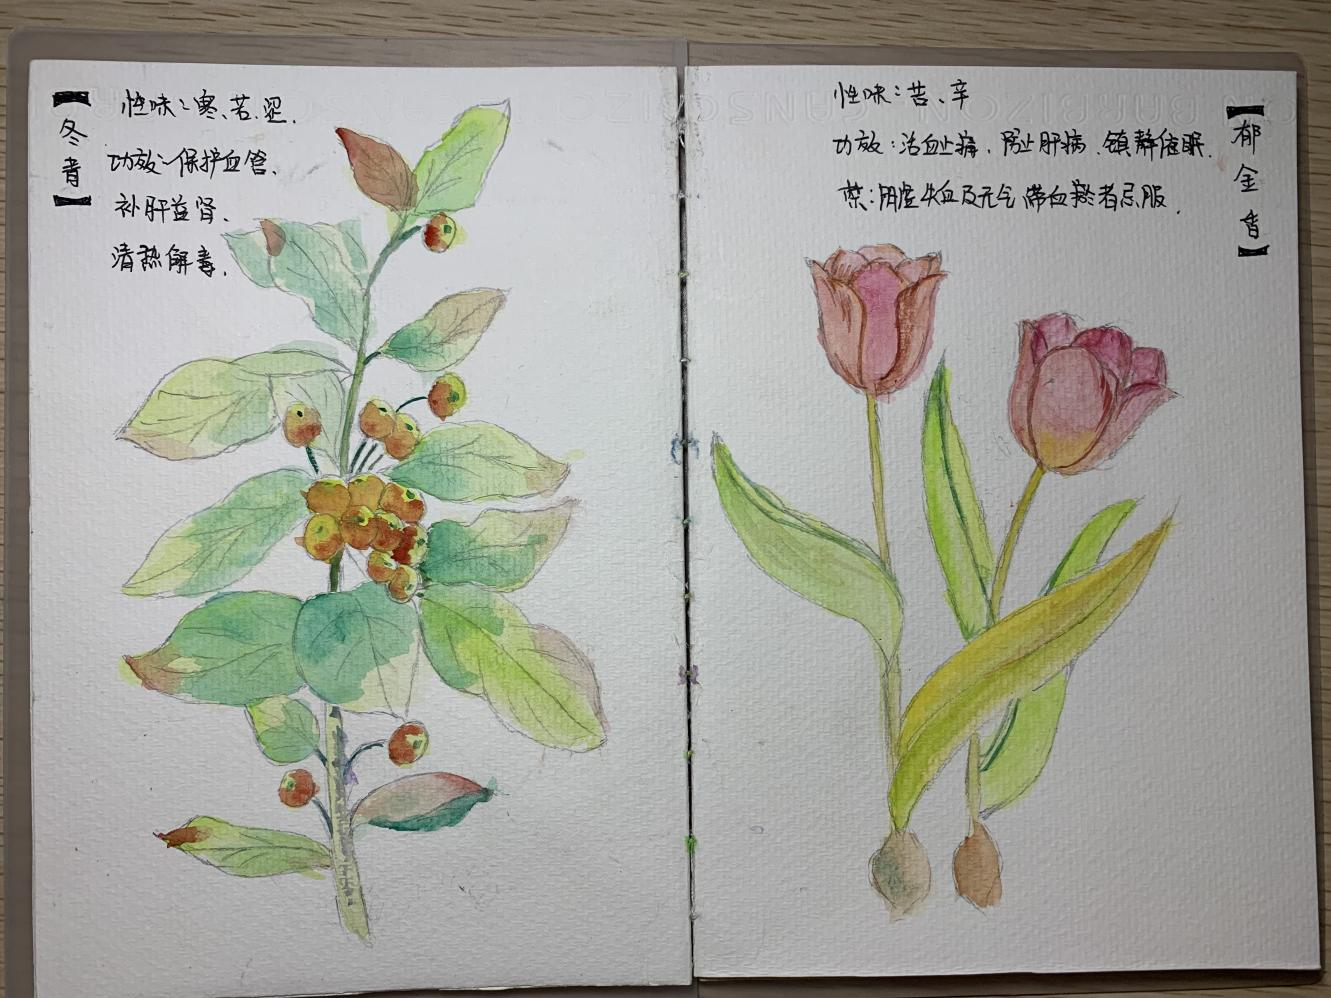 【冬青】
性味：寒、苦、涩.
功效：保护血管.
补肝益肾.
清热解毒.
【郁金香】
性味：苦、辛
功效：活血止痛、防止肝病、镇静催眠.
禁：阴虚失血及无气滞血瘀者忌服.